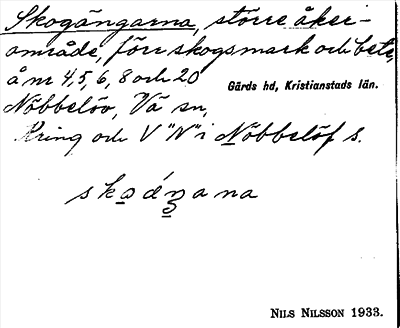 Skogängarna, större åker-
område, förr skogsmark och bete,
å nr 4, 5, 6, 8 och 20
Gärds hd, Kristianstads län.
Nöbbelöv, Vä sn,
Kring och V "N" i Nöbbelöf s.
NILS NILSSON 1933.